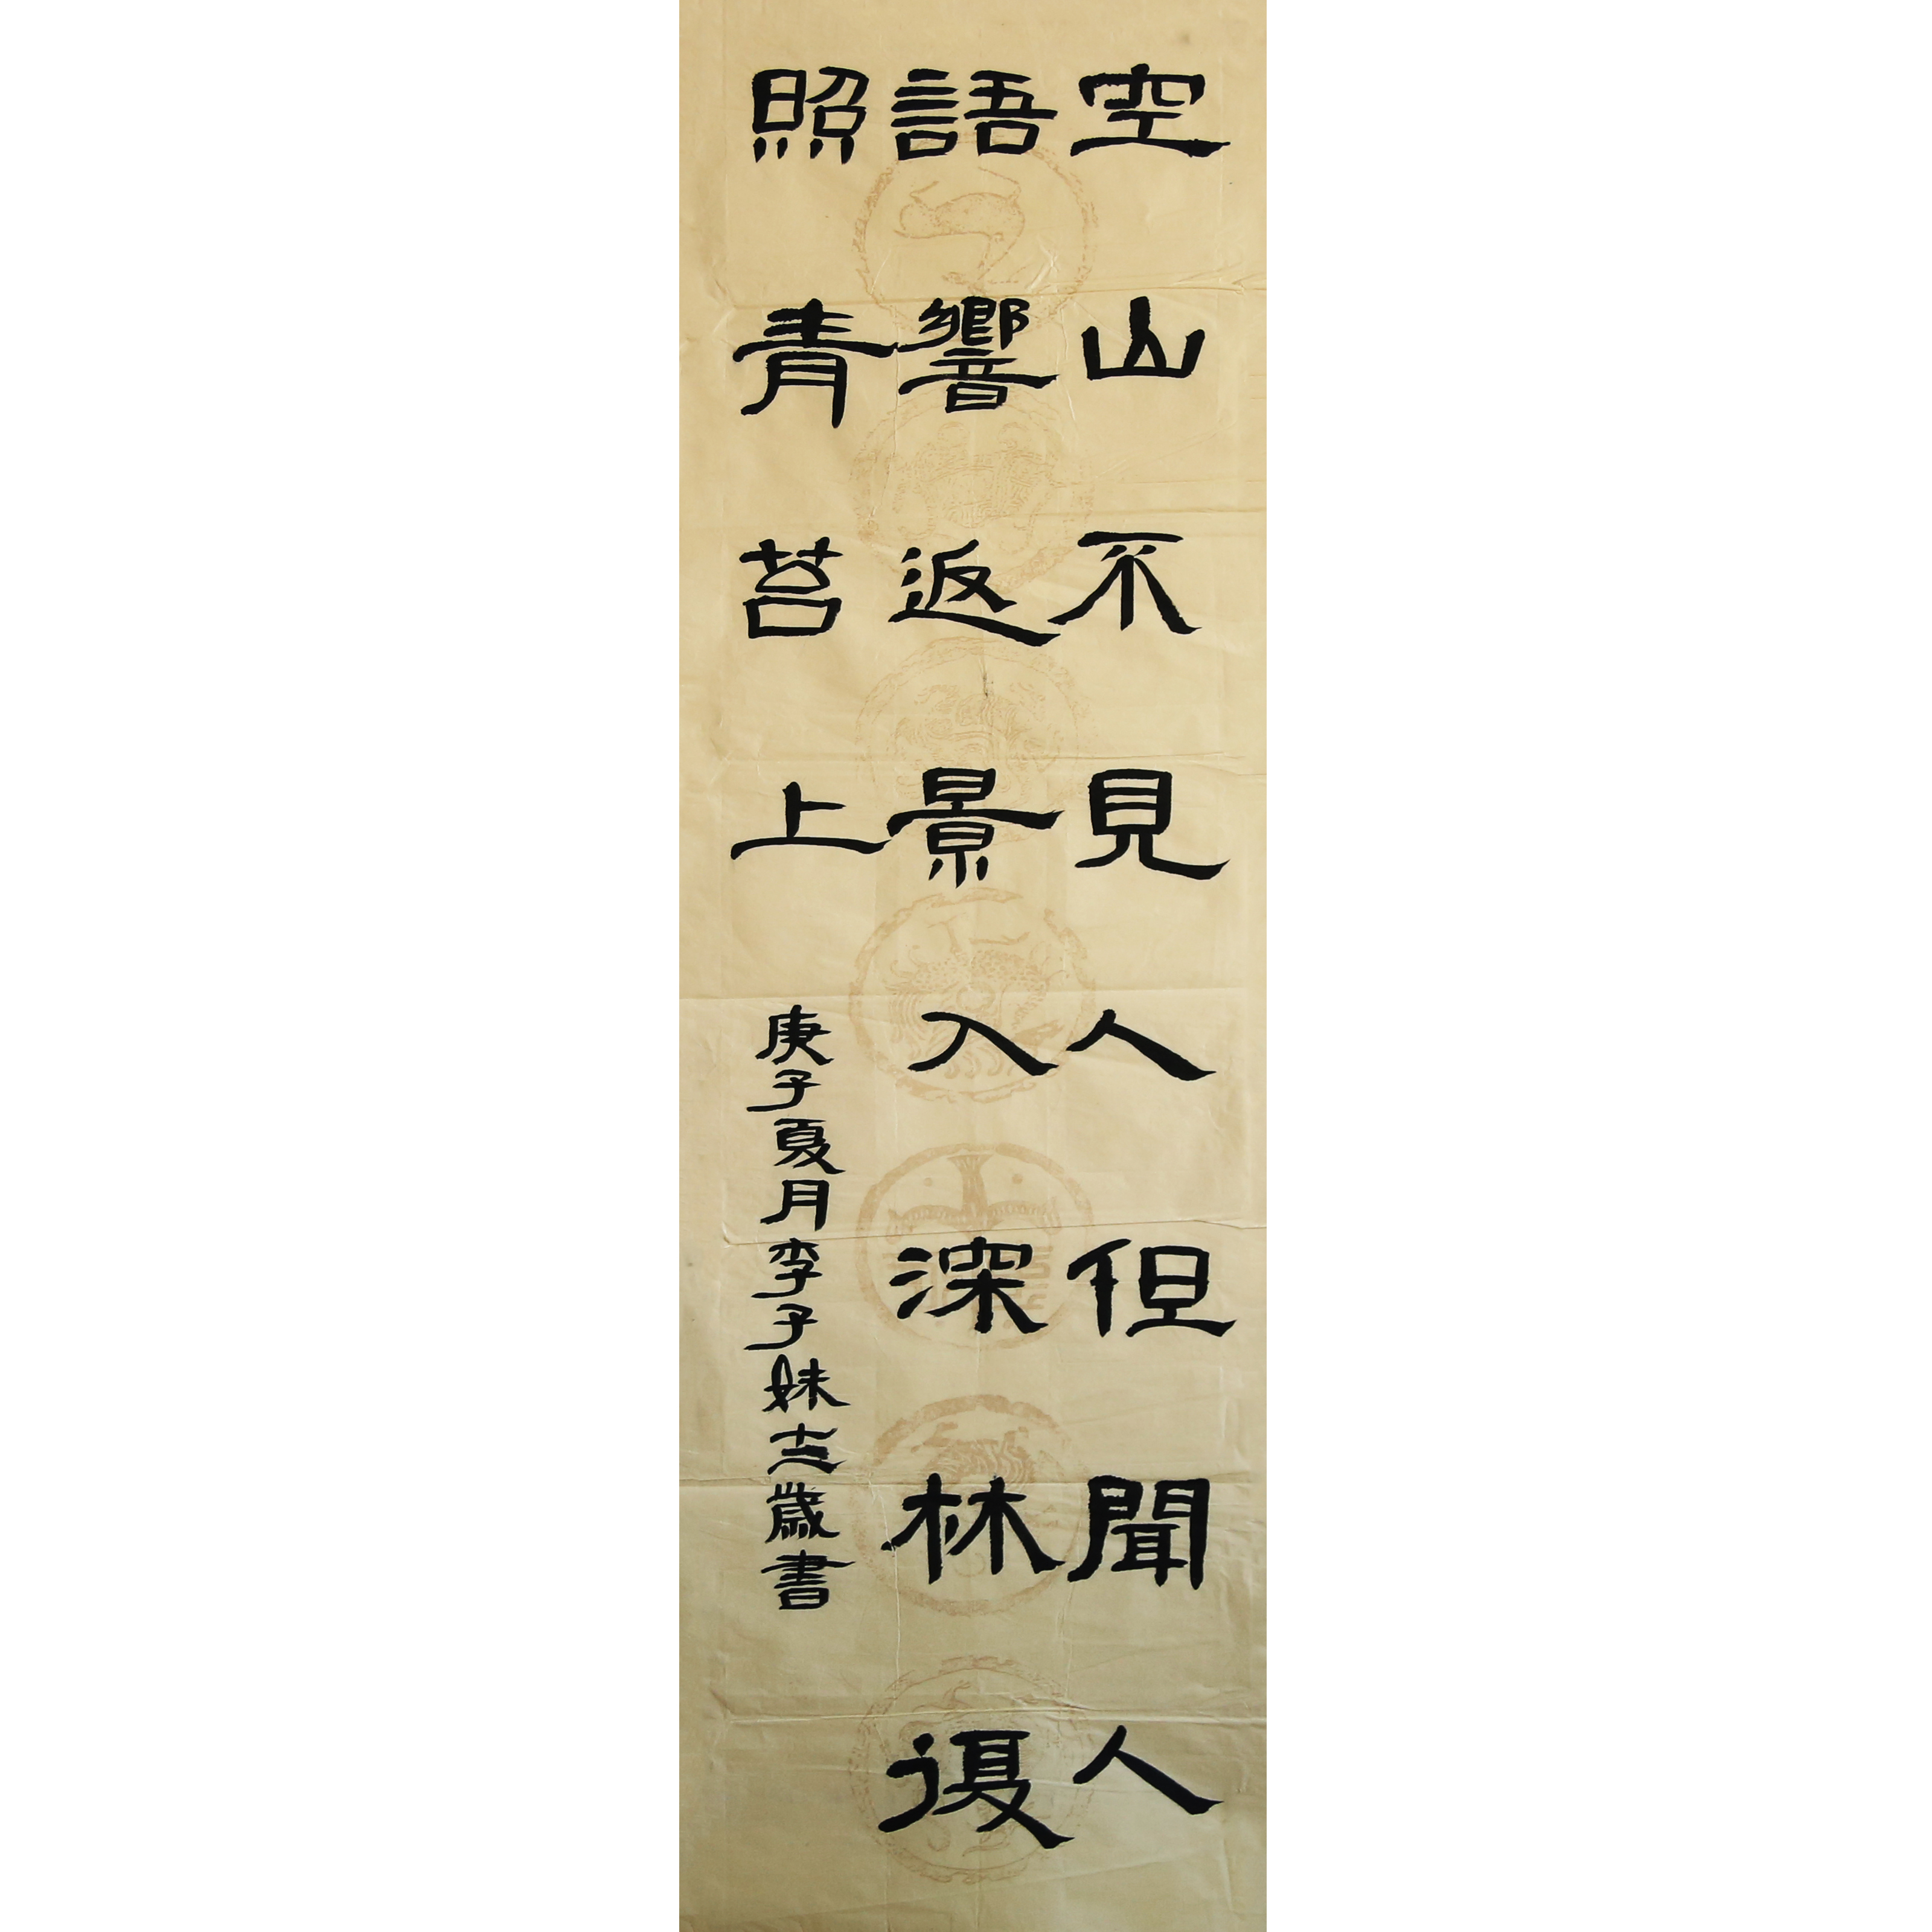 空山不見人但聞人
語響返景入深林復
照青苔上
庚子夏月李子妹十二歲書